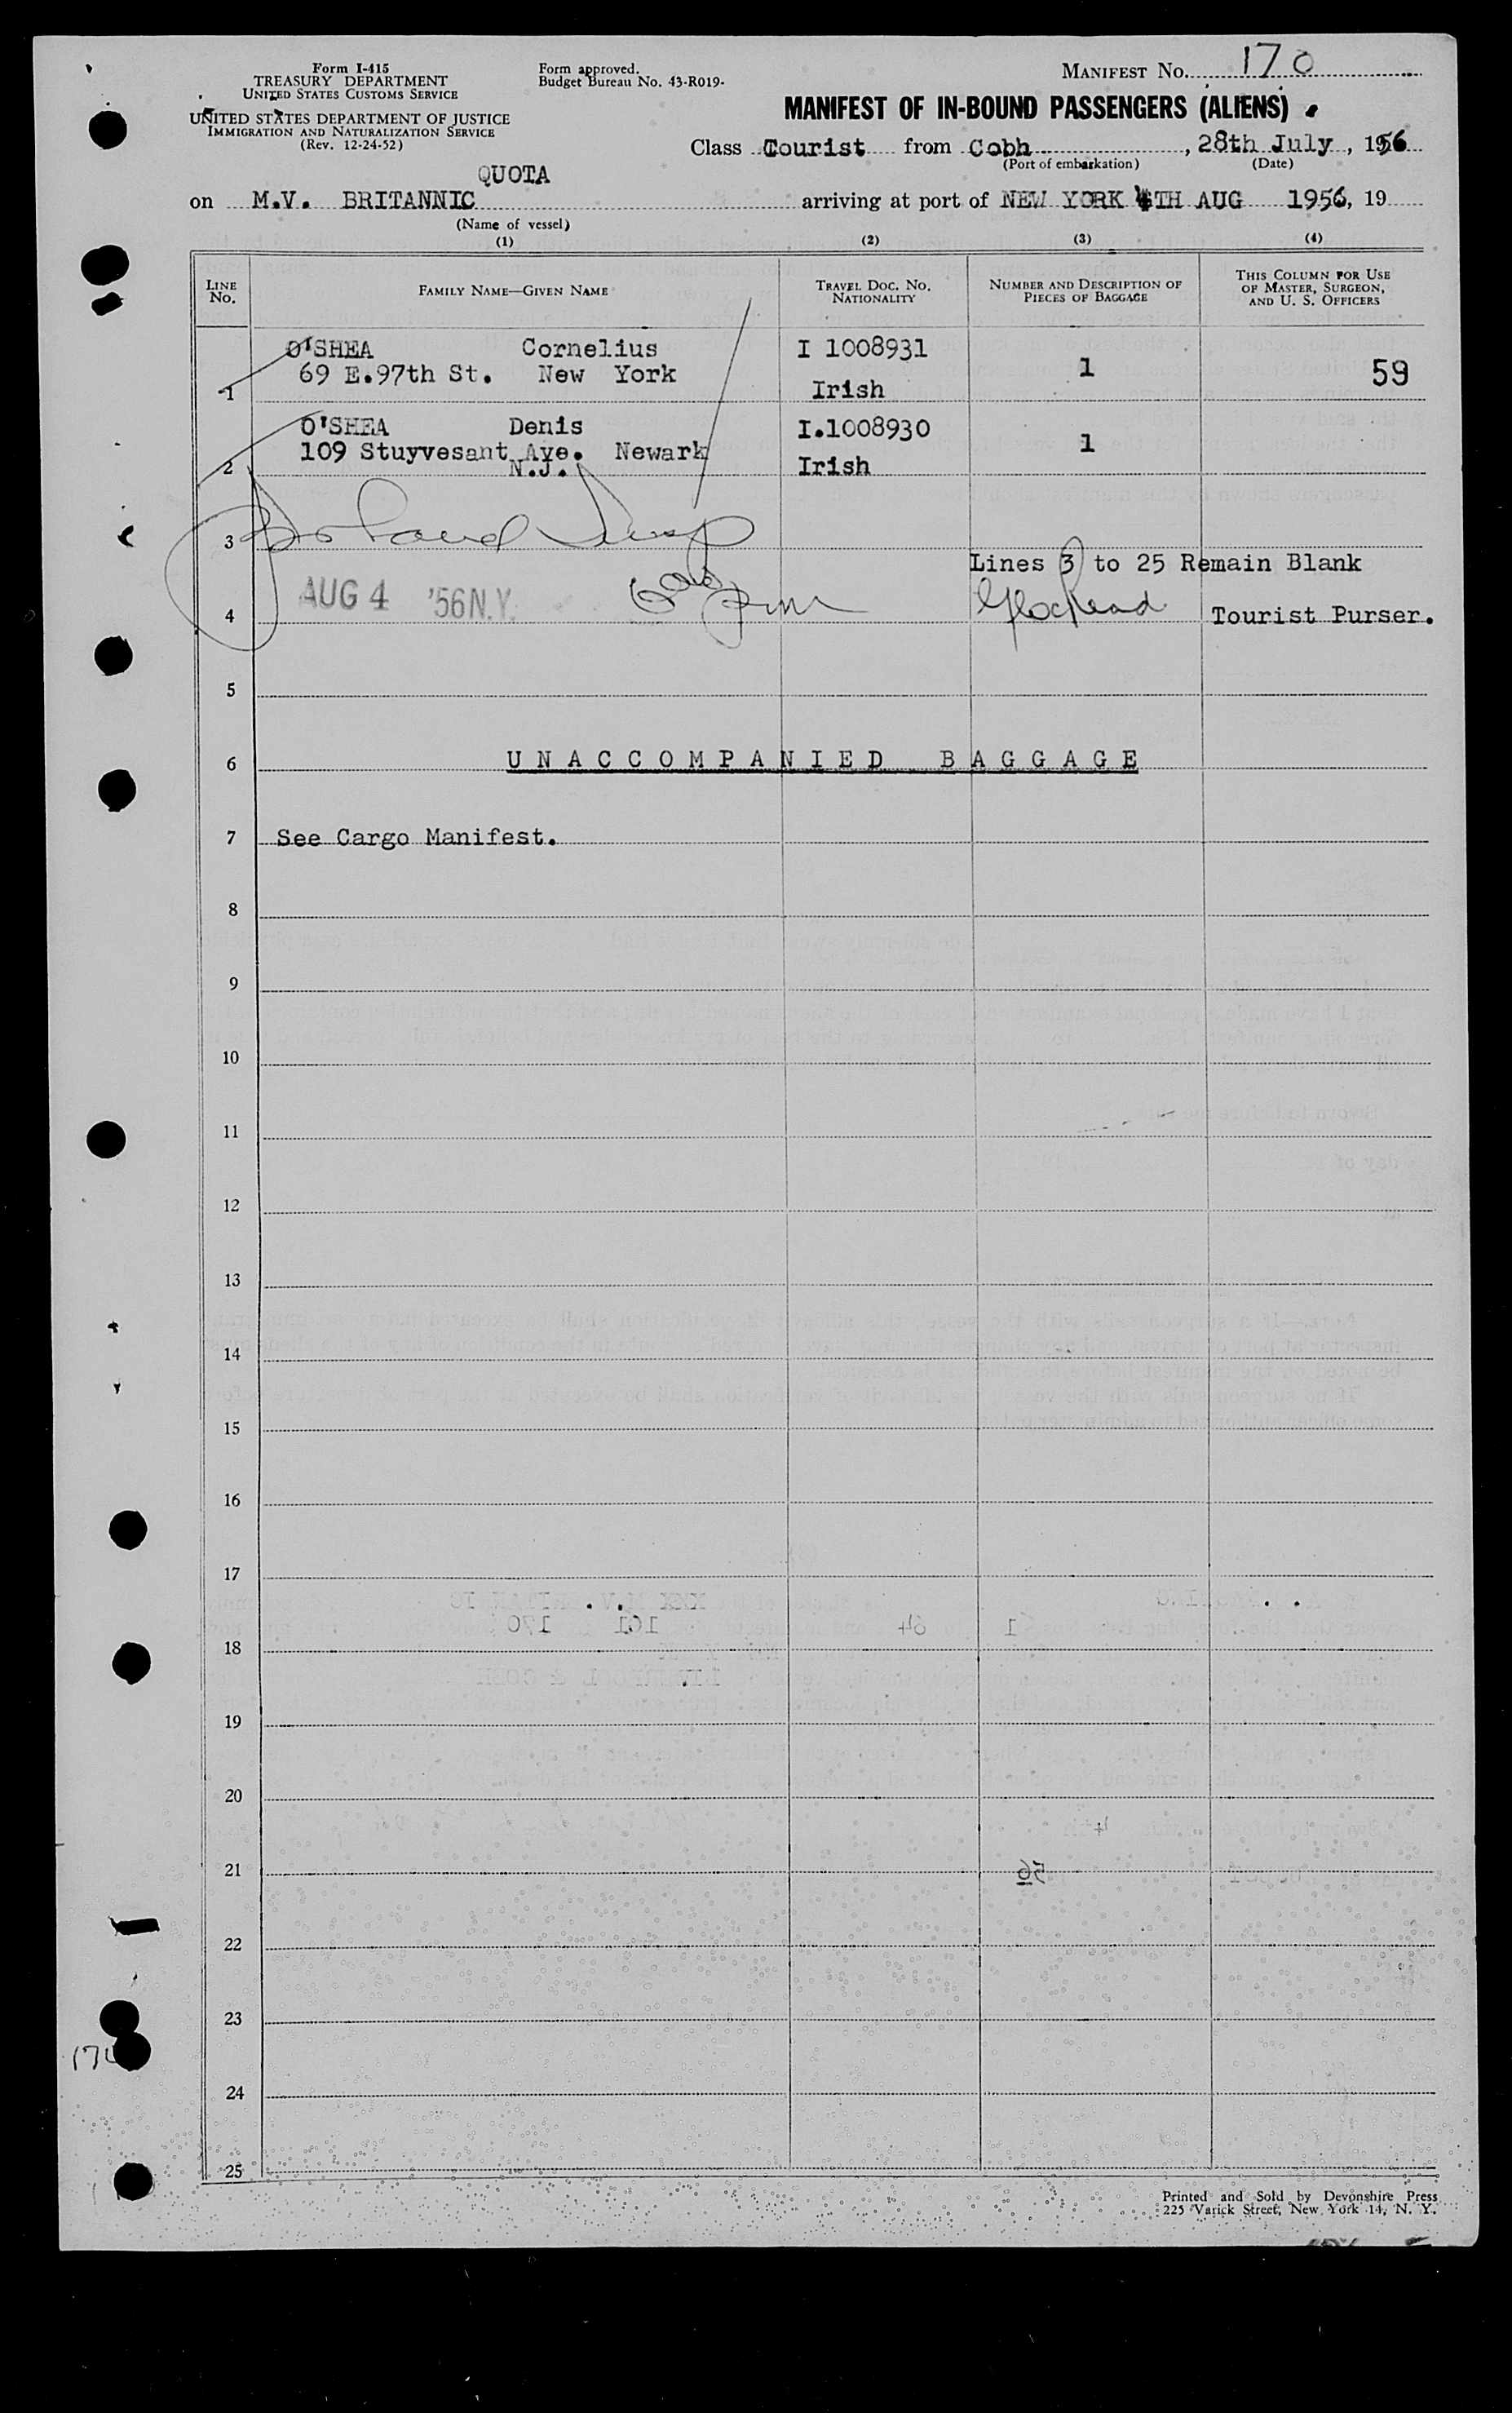 Form I-415
TREASURY DEPARTMENT
UNITED STATES CUSTOMS SERVICE
UNITED STATES DEPARTMENT OF JUSTICE
IMMIGRATION AND NATURALIZATION SERVICE
(Rev. 12-24-52)
Form approved.
Budget Bureau No. 43-R019-
MANIFEST No. 170
MANIFEST OF IN-BOUND PASSENGERS (ALIENS)
Class Tourist from Cobh, 28th July, 1956
(Port of embarkation) (Date)
QUOTA
on M.V. BRITANNIC arriving at port of NEW YORK 4TH AUG 1956, 19
(Name of vessel)
(1) (2) (3) (4)
LINE No. FAMILY NAME—GIVEN NAME TRAVEL DOC. NO. NATIONALITY NUMBER AND DESCRIPTION OF PIECES OF BAGGAGE THIS COLUMN FOR USE OF MASTER, SURGEON, AND U. S. OFFICERS
O'SHEA Cornelius I 1008931
69 E.97th St. New York 1 59
1 Irish
O'SHEA Denis I.1008930
109 Stuyvesant Ave. Newark 1
2 N.J. Irish
3
Lines 3 to 25 Remain Blank
AUG 4 '56 N.Y.
4 Tourist Purser.
5
6 UNACCOMPANIED BAGGAGE
7 See Cargo Manifest.
8
9
10
11
12
13
14
15
16
17
18
19
20
21
22
23
24
25
Printed and Sold by Devonshire Press
225 Varick Street, New York 14, N. Y.